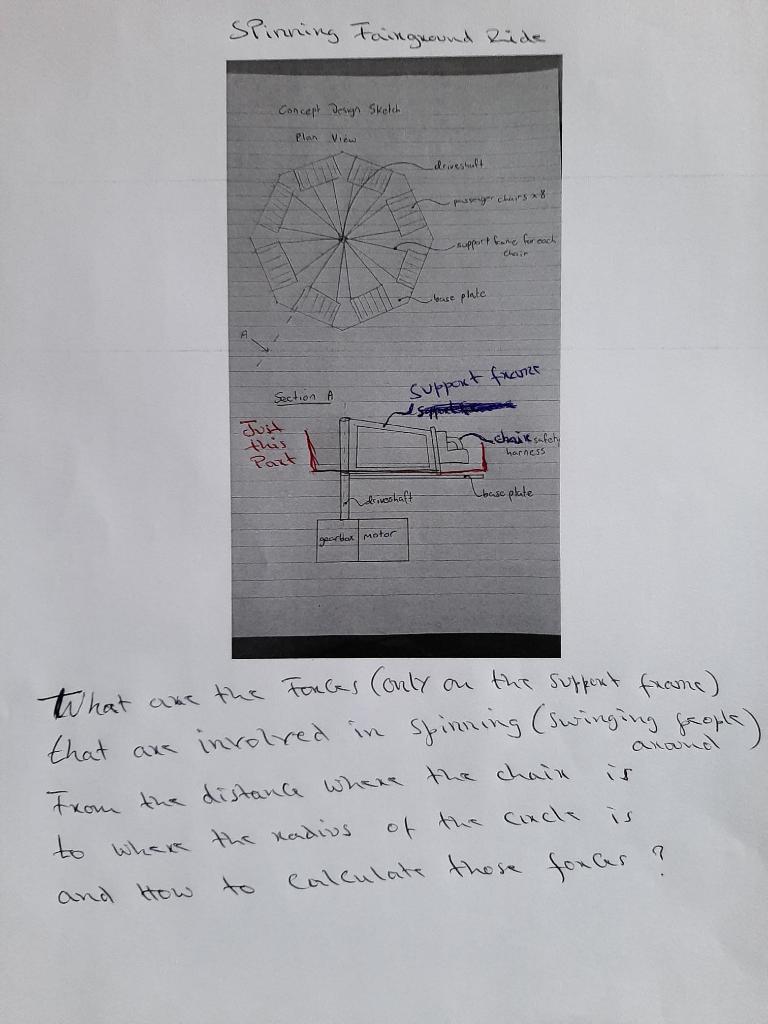 Spinning Fairground Ride
Concept Design Sketch
Plan View
driveshaft
passenger chairs x8
support frame for each
chair
base plate
A
Section A
support frame
Just
this
Part
chair safety
harness
base plate
driveshaft
gearbox motor
What are the Forces (only on the support frame)
that are involved in spinning (swinging people)
around
From the distance where the chair is
to where the radius of the circle is
and How to calculate those forces ?